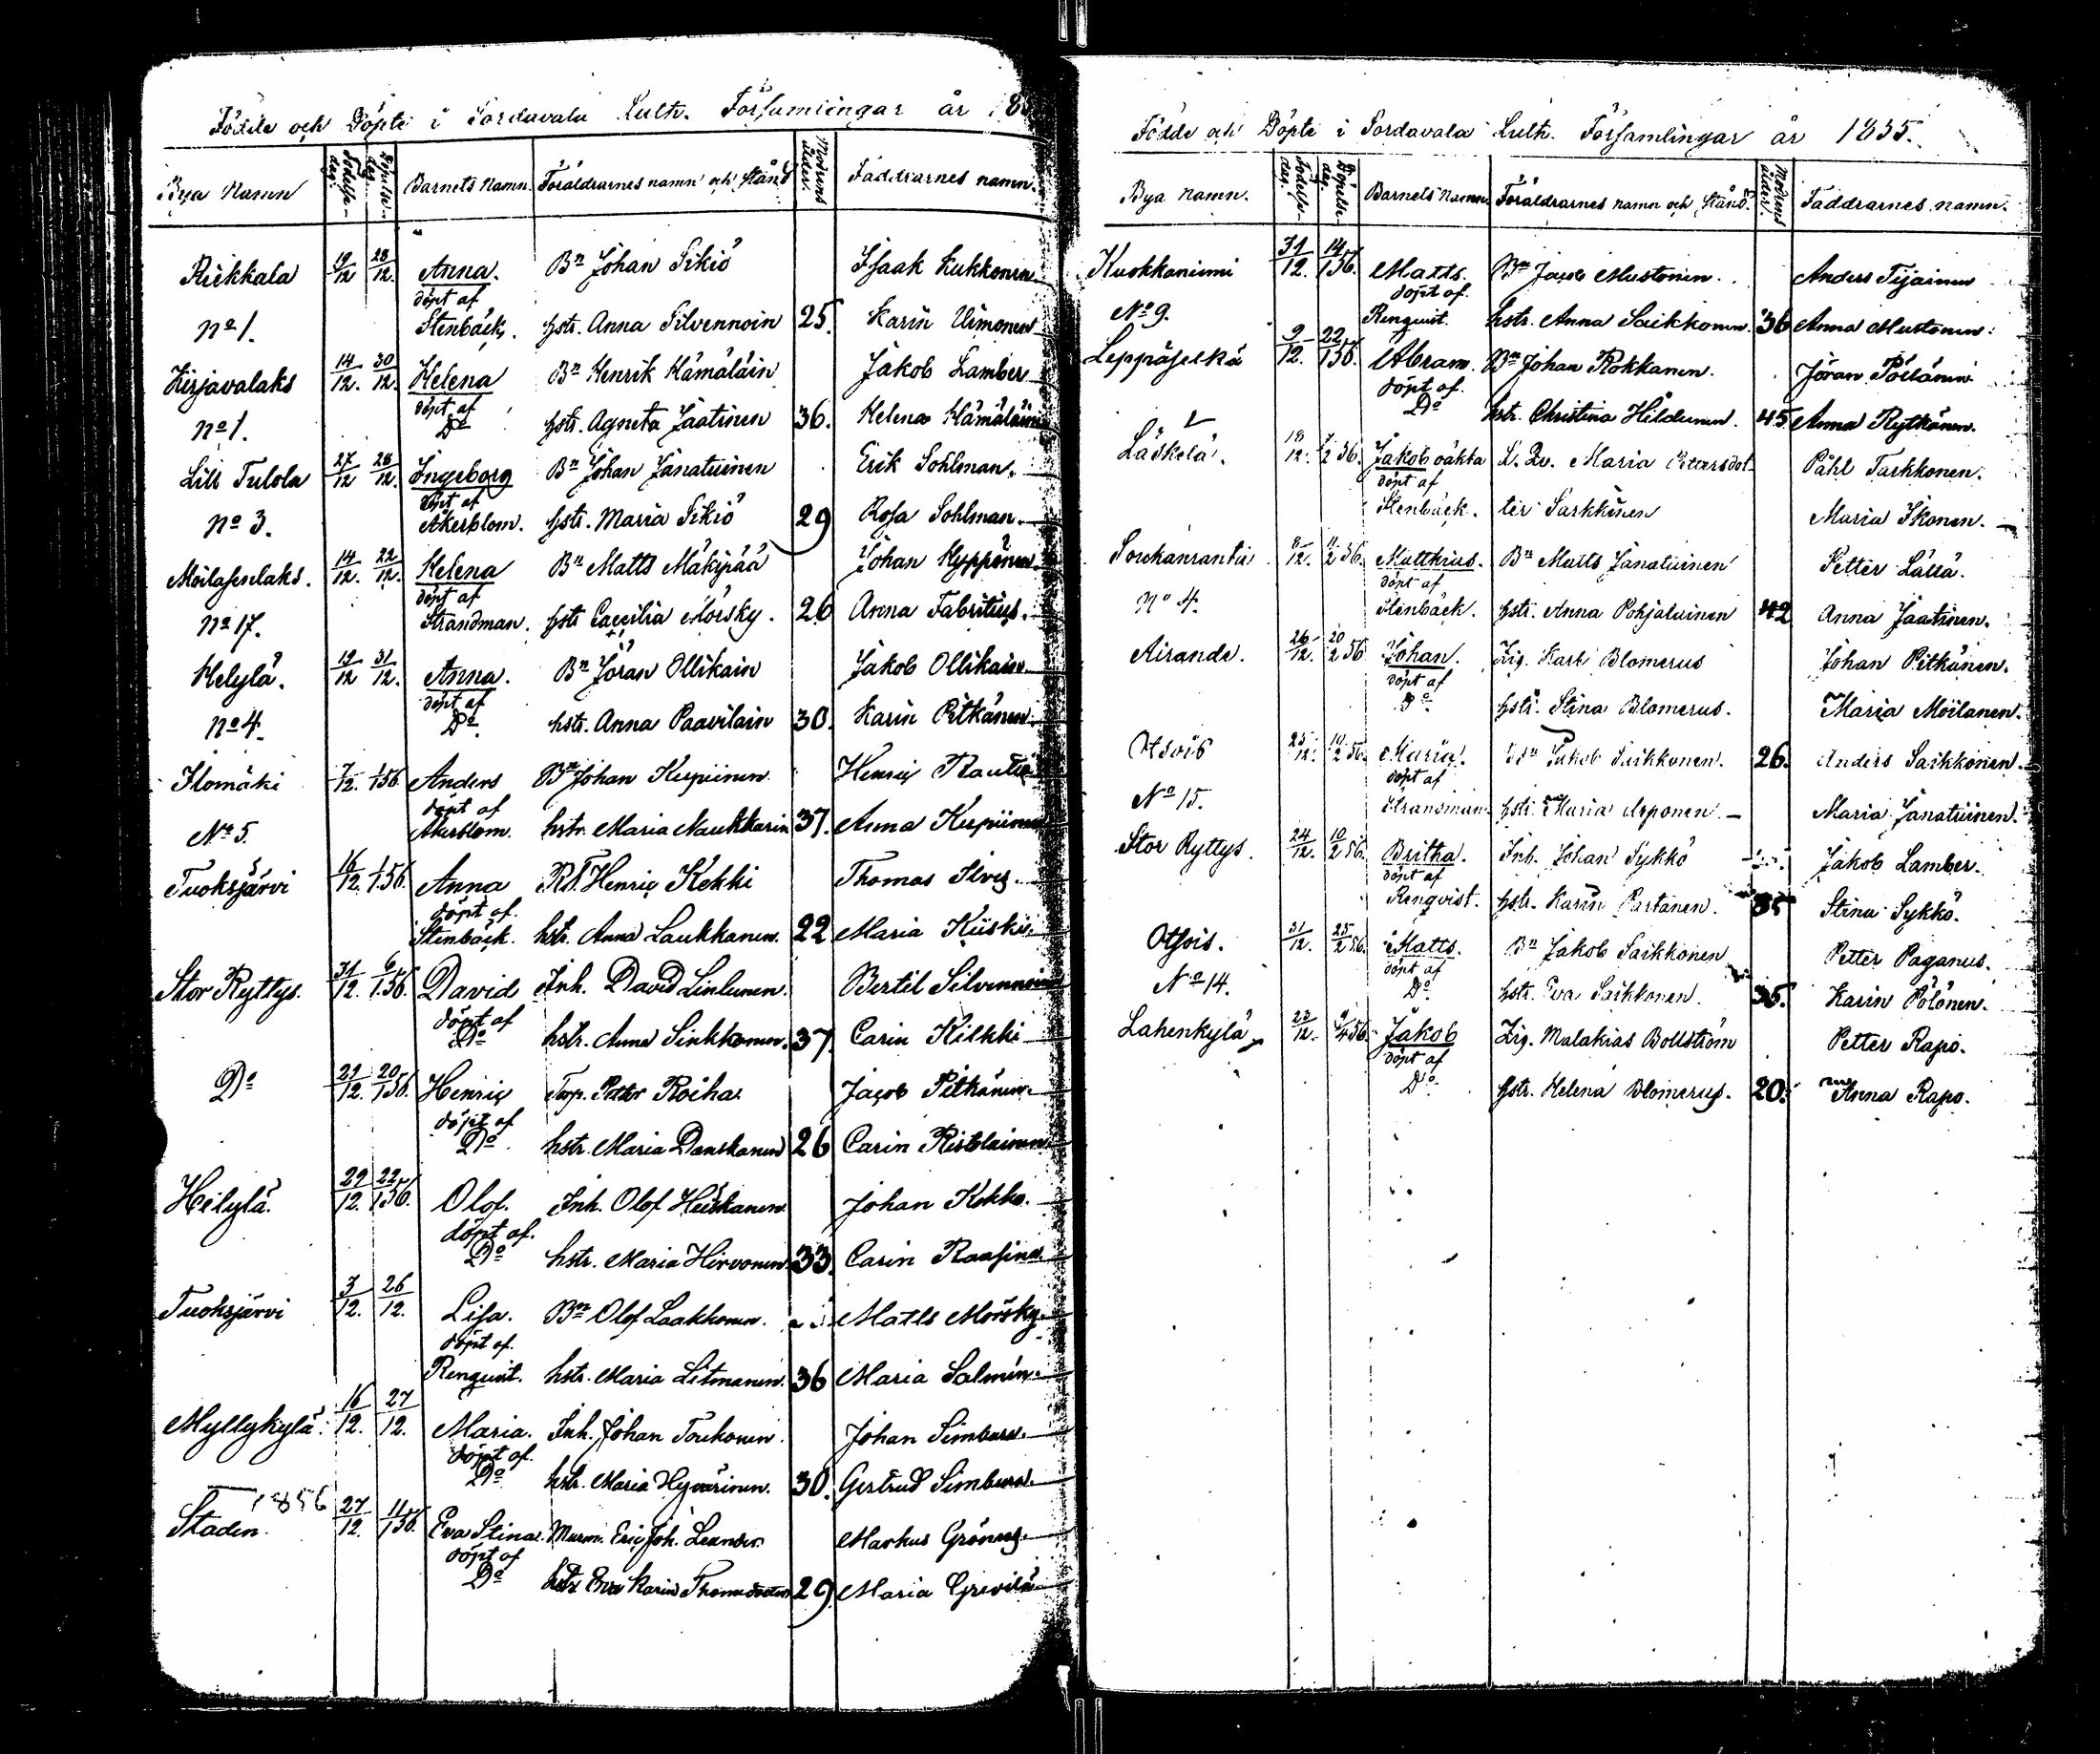 Födde och Döpte i Sordavala Luth. Församlingar år 18
Bya Namn Födelse-dag. Döpelse-dag Barnets Namn. Föräldrarnes namn och Stånd Modrens ålder. Faddrarnes namn.
Riekkala 19/12 28/12. Anna. Bn Johan Sikiö Isaak Kukkonen
döpt af
No 1. Stenbäck. hstr. Anna Silvennoin 25. Karin Uimonen
Kirjavalaks 14/12. 30/12. Helena Bn Henrik Hämäläin Jakob Lamber
döpt af
No 1. Do hstr. Agneta Jaatinen 36. Helena Hämäläinen
Lill Tulola 27/12 28/12. Ingeborg Bn Johan Janatuinen Erik Sohlman.
döpt af
No 3. Åkerblom. hstr. Maria Sikiö 29 Rosa Sohlman.
Möilasenlaks. 14/12. 22/12. Helena Bn Matts Mäkipää Johan Hyppönen
döpt af
No 17. Strandman. hstr Caecilia Mörsky. 26 Anna Fabritius.
Helylä. 19/12 31/12. Anna. Bn Jöran Ollikain Jakob Ollikain
döpt af
No 4. Do. hstr. Anna Paavilain 30. Karin Pitkänen
Ilomäki 7/12. 1/1 56. Anders Bn Johan Kupiinen Henric
döpt af
No 5. Åkerblom. hstr. Maria Naukkarin 37. Anna Kupiinen
Tuoksjärvi 16/12. 1/1. 56. Anna Henric Kekki Thomas Ilves.
döpt af.
Stenbäck. hstr. Anna Laukkanen. 22 Maria Kiiski.
Stor Ryttys. 31/12. 6/1. 56. David Inh. David Linlunen. Bertil Silvennoinen
döpt af
Do hstr. Anna Sinkkonen. 37. Carin Kilkki
Do 29/12. 20/1 56. Henric Torp. Petter Roiha. Jacob Pitkänen.
döpt af
Do hstr. Maria Danskanen 26 Carin Ristolainen
Helylä. 29/12. 22/1 56. Olof. Inh. Olof Heiskanen Johan Kokko.
döpt af.
Do hstr. Maria Hirvonen. 33. Carin Raasina.
Tuoksjärvi 3/12. 26/12. Lisa. Bn Olof Laakkonen. Matts Mörsky.
döpt af.
Renquist. hstr. Maria Litmanen. 36 Maria Salmin.
Myllykylä. 16/12. 27/12. Maria. Inh. Johan Toukonen. Johan Simbura.
döpt af.
Do hstr. Maria Hyvärinen. 30. Gertrud Simbura.
1856
Staden. 27/12. 11/1 56. Eva Stina. Murm. Eric Joh. Leander. Markus Grönus.
döpt af
Do hstr Eva Karin Thomasdotter 29 Maria
Födde och Döpte i Sordavala Luth. Församlingar år 1855.
Bya namn. Födelse-dag. Döpelse-dag. Barnets Namn. Föräldrarnes namn och Stånd. Modrens ålder. Faddrarnes namn.
Kuokkaniemi 31/12. 14/1 56. Matts. Bn Jacob Mustonen. Anders Tijainen
döpt af.
No 9. Renquist. hstr. Anna Saikkonen. 36 Anna Mustonen.
Leppäselkä 9/12. 22/1 56. Abram. Bn Johan Rokkanen. Jöran Pöllänen
döpt af.
Do hstr. Christina Hildunen. 45 Anna Rytkönen.
Läskelä. 18/12. 7/2 56. Jakob oäkta L. Qv. Maria Petersdot- Påhl Tarkkonen.
döpt af
Stenbäck. ter Sarkkinen Maria Ikonen.
Sorokanranta 8/12. 11/2 56. Matthius. Bn Matts Janatuinen Petter Lälä.
döpt af
No 4. Stenbäck. hstr. Anna Pohjalainen 42 Anna Jaatinen.
Airanda. 26/12. 20/2 56 Johan. Zig. Karl Blomerus Johan Pitkänen.
döpt af
Do. hstr. Stina Blomerus. Maria Möilanen.
Otsois 25/12. 10/2 56. Maria. Bn Jakob Saikkonen. 26. Anders Saikkonen.
döpt af
No 15. Strandman. hstr. Maria Arponen. Maria Janatuinen.
Stor Ryttys. 24/12. 10/2 56. Britha. Inh. Johan Sykkö Jakob Lamber.
döpt af
Renqvist. hstr. Karin Partanen. 35 Stina Sykkö.
Otsois. 31/12. 25/2 56. Matts. Bn Jakob Saikkonen Petter Paganus.
döpt af
No 14. Do. hstr. Eva Saikkonen. 35. Karin Pölönen.
Lahenkylä 23/12. 9/4 56. Jakob Zig. Malakias Bollström Petter Rapo.
döpt af
Do. hstr. Helena Blomerus. 20. Anna Rapo.